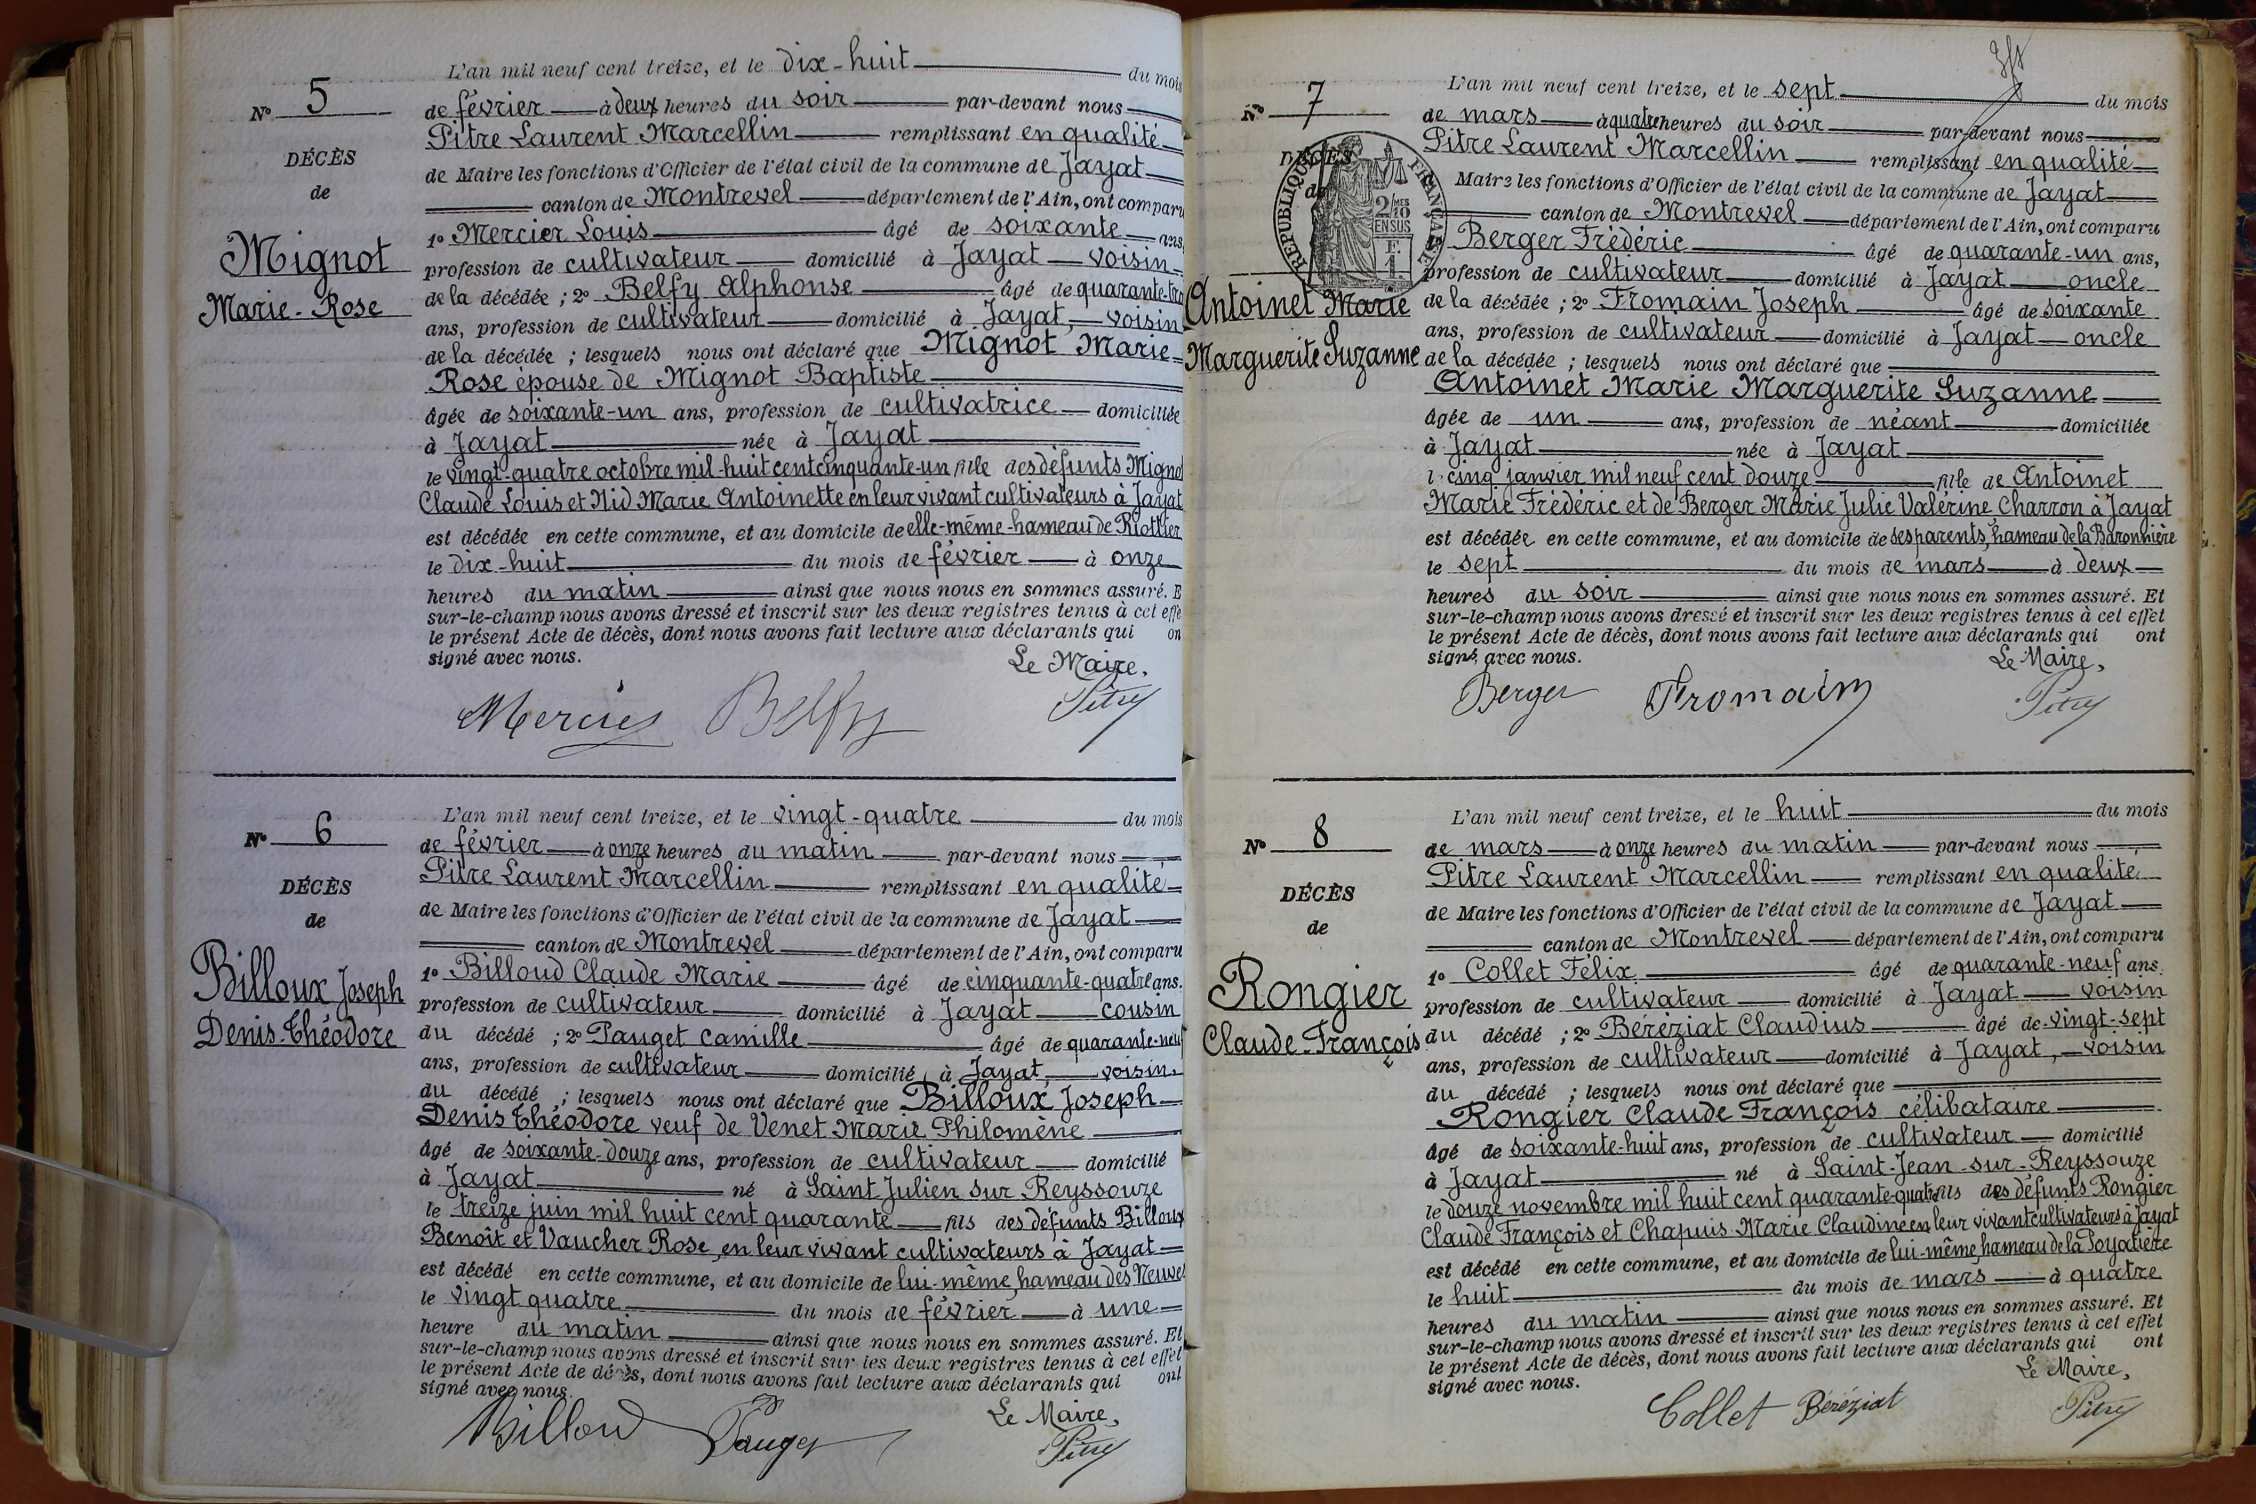 L'an mil neuf cent treize, et le dix-huit du mois
N° 5
de février à deux heures du soir par-devant nous
Pitre Laurent Marcellin remplissant en qualité
DÉCÈS
de Maire les fonctions d'Officier de l'état civil de la commune de Jayat
de
canton de Montrevel département de l'Ain, ont comparu
1° Mercier Louis âgé de soixante ans,
Mignot
profession de cultivateur domicilié à Jayat voisin
Marie-Rose
de la décédée ; 2° Belfy Alphonse âgé de quarante-tro
ans, profession de cultivateur domicilié à Jayat, voisin
de la décédée ; lesquels nous ont déclaré que Mignot Marie
Rose épouse de Mignot Baptiste
âgée de soixante-un ans, profession de cultivatrice domiciliée
à Jayat née à Jayat
le vingt-quatre octobre mil-huit cent cinquante-un fille des défunts Mignot
Claude Louis et Nid Marie Antoinette en leur vivant cultivateurs à Jayat
est décédée en cette commune, et au domicile de elle-même-hameau de Riottier
le dix-huit du mois de février à onze
heures du matin ainsi que nous nous en sommes assuré. E
sur-le-champ nous avons dressé et inscrit sur les deux registres tenus à cet effe
le présent Acte de décès, dont nous avons fait lecture aux déclarants qui on
signé avec nous.
Le Maire,
Mercier Belfy Pitre
L'an mil neuf cent treize, et le vingt-quatre du mois
N° 6
de février à onze heures du matin par-devant nous
Pitre Laurent Marcellin remplissant en qualité
DÉCÈS
de Maire les fonctions d'Officier de l'état civil de la commune de Jayat
de
canton de Montrevel département de l'Ain, ont comparu
1° Billoud Claude Marie âgé de cinquante-quatre ans.
Billoux Joseph
profession de cultivateur domicilié à Jayat cousin
Denis-Théodore
du décédé ; 2° Pauget Camille âgé de quarante-neuf
ans, profession de cultivateur domicilié à Jayat, voisin.
du décédé ; lesquels nous ont déclaré que Billoux Joseph
Denis Théodore veuf de Venet Marie Philomène
âgé de soixante-douze ans, profession de cultivateur domicilié
à Jayat né à Saint Julien sur Reyssouze
le treize juin mil huit cent quarante fils des défunts Billoux
Benoît et Vaucher Rose, en leur vivant cultivateurs à Jayat
est décédé en cette commune, et au domicile de lui-même, hameau des Neuves
le vingt quatre du mois de février à une
heure du matin ainsi que nous nous en sommes assuré. Et
sur-le-champ nous avons dressé et inscrit sur les deux registres tenus à cet effet
le présent Acte de décès, dont nous avons fait lecture aux déclarants qui ont
signé avec nous.
Le Maire,
Billoud Pauget Pitre
L'an mil neuf cent treize, et le sept du mois
N° 7
de mars à quatre heures du soir par-devant nous
Pitre Laurent Marcellin remplissant en qualité
DÉCÈS
de
RÉPUBLIQUE FRANÇAISE
2/10 MES EN SUS
F. 1
Maire les fonctions d'Officier de l'état civil de la commune de Jayat
canton de Montrevel département de l'Ain, ont comparu
Berger Frédéric âgé de quarante-un ans,
profession de cultivateur domicilié à Jayat oncle
Antoinet Marie
de la décédée ; 2° Fromain Joseph âgé de soixante
ans, profession de cultivateur domicilié à Jayat oncle
Marguerite Suzanne
de la décédée ; lesquels nous ont déclaré que
Antoinet Marie Marguerite Suzanne
âgée de un ans, profession de néant domiciliée
à Jayat née à Jayat
l cinq janvier mil neuf cent douze fille de Antoinet
Marie Frédéric et de Berger Marie Julie Valérine Charron à Jayat
est décédée en cette commune, et au domicile de ses parents, hameau de la Baronnière
le sept du mois de mars à deux
heures du soir ainsi que nous nous en sommes assuré. Et
sur-le-champ nous avons dressé et inscrit sur les deux registres tenus à cet effet
le présent Acte de décès, dont nous avons fait lecture aux déclarants qui ont
signé avec nous.
Le Maire,
Berger Fromain Pitre
L'an mil neuf cent treize, et le huit du mois
N° 8
de mars à onze heures du matin par-devant nous
Pitre Laurent Marcellin remplissant en qualité
DÉCÈS
de Maire les fonctions d'Officier de l'état civil de la commune de Jayat
de
canton de Montrevel département de l'Ain, ont comparu
1° Collet Félix âgé de quarante-neuf ans.
Rongier
profession de cultivateur domicilié à Jayat voisin
Claude-François
du décédé ; 2° Béréziat Claudius âgé de vingt-sept
ans, profession de cultivateur domicilié à Jayat, voisin
du décédé ; lesquels nous ont déclaré que
Rongier Claude François célibataire
âgé de soixante-huit ans, profession de cultivateur domicilié
à Jayat né à Saint-Jean-sur-Reyssouze
le douze novembre mil huit cent quarante-quatre fils des défunts Rongier
Claude François et Chapuis Marie Claudine en leur vivant cultivateurs à Jayat
est décédé en cette commune, et au domicile de lui-même, hameau de la Poyatière
le huit du mois de mars à quatre
heures du matin ainsi que nous nous en sommes assuré. Et
sur-le-champ nous avons dressé et inscrit sur les deux registres tenus à cet effet
le présent Acte de décès, dont nous avons fait lecture aux déclarants qui ont
signé avec nous.
Le Maire,
Collet Béréziat Pitre